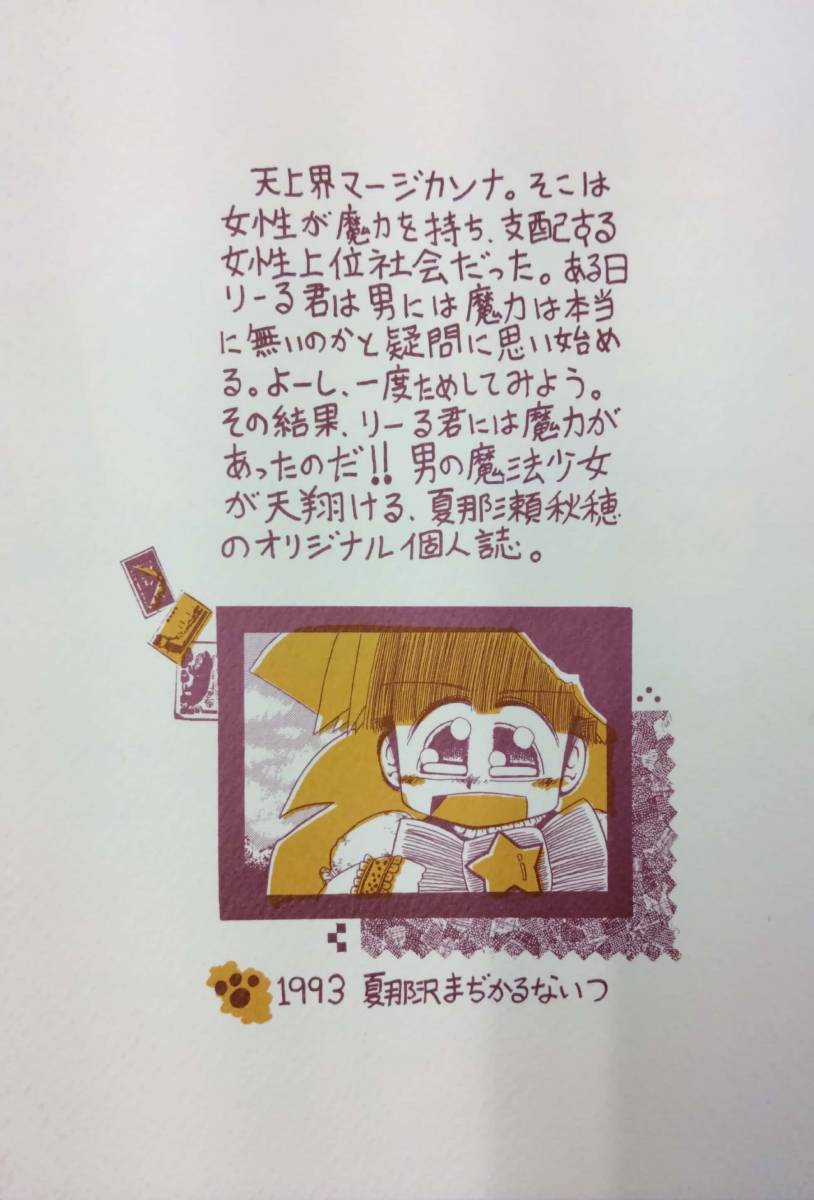 天上界マージカソナ。そこは
女性が魔力を持ち、支配する
女性上位社会だった。ある日
りーる君は男には魔力は本当
に無いのかと疑問に思い始め
る。よーし、一度ためしてみよう。
その結果、りーる君には魔力が
あったのだ!! 男の魔法少女
が天翔ける、夏那瀬秋穂
のオリジナル個人誌。
1993 夏那沢まぢかるないつ